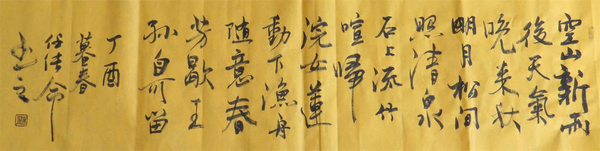 空山新雨
後天氣
晚来秋
明月松間
照清泉
石上流竹
喧歸
浣女蓮
動下漁舟
随意春
芳歇王
孫自可留
丁酉
暮春